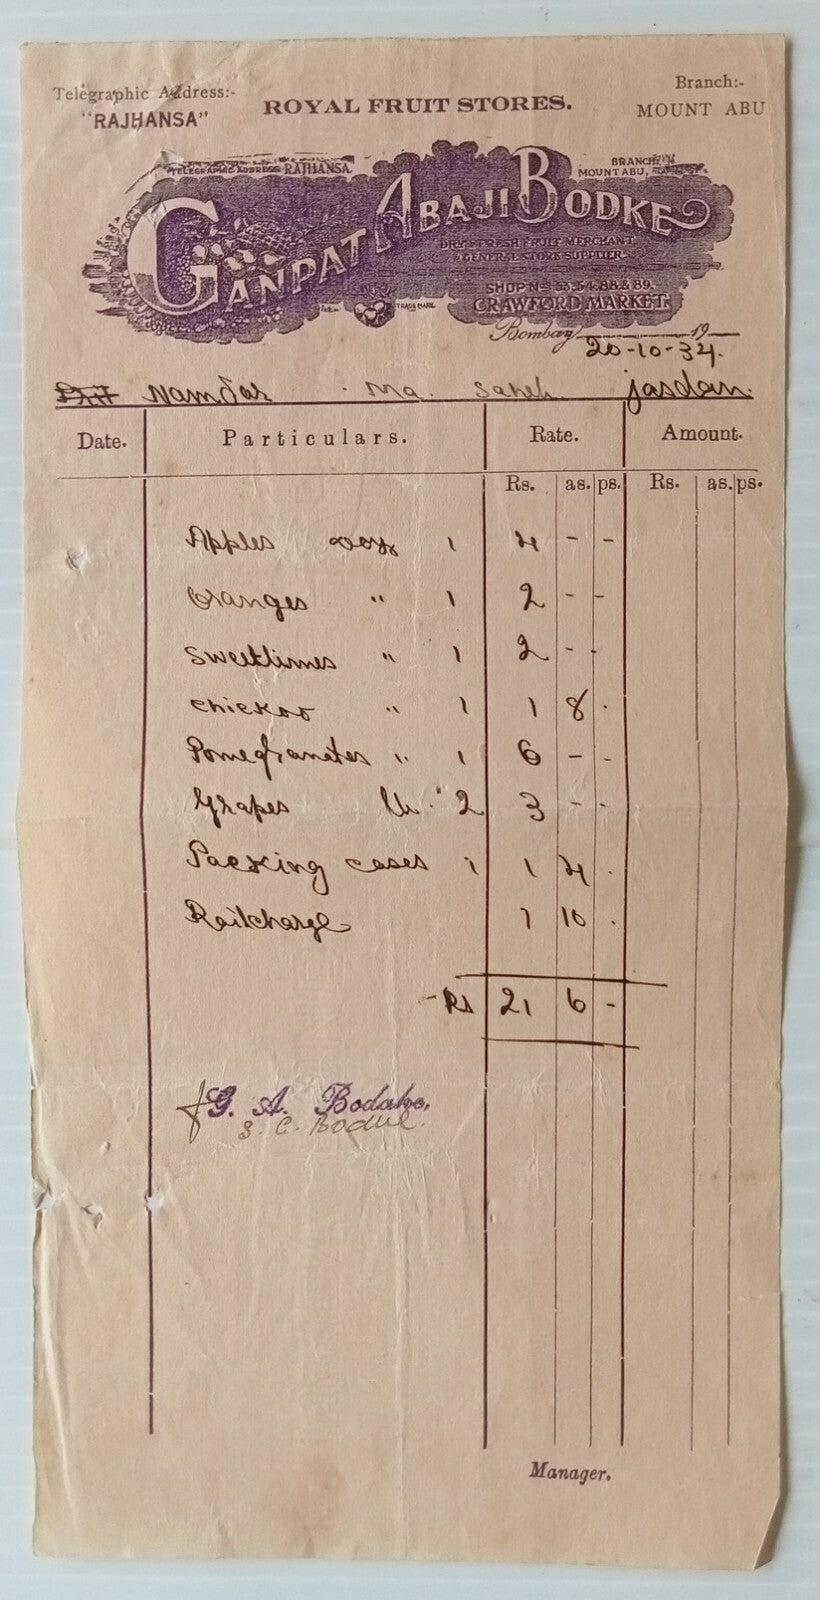 Telegraphic Address:-
"RAJHANSA"
ROYAL FRUIT STORES.
Branch:-
MOUNT ABU
TELEGRAPHIC ADDRESS RAJHANSA
BRANCH
MOUNT ABU,
GANPAT ABAJI BODKE
DRY & FRESH FRUIT MERCHANT
& GENERAL STORE SUPPLIER
SHOP Nos 53,54,88 & 89.
CRAWFORD MARKET.
TRADE MARK
Bombay 19
20-10-34.
Namdar Ma. Saheb jasdan.
Date. Particulars. Rate. Amount.
Rs. as. ps. Rs. as. ps.
Apples doz 1 4 - -
Oranges " 1 2 - -
Sweetlimes " 1 2 - -
Chickoo " 1 1 8 .
Pomegranates " 1 6 - -
Grapes lb. 2 3 - -
Packing cases 1 1 4 .
Railcharge 1 10 .
Rs 21 6 -
f G. A. Bodake.
S. C. Bodke.
Manager.